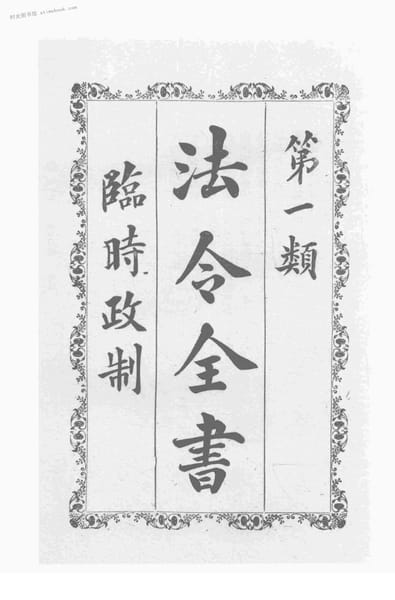 时光图书馆 atimebook.com
第一類
法令全書
臨時政制